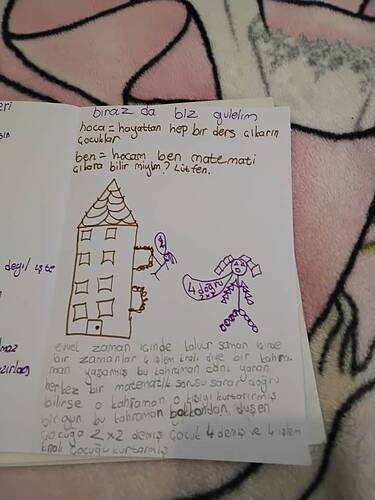 eri
sin
değil işte
maz
biraz da biz gülelim
hoca = hayattan hep bir ders çıkarın
çocuklar
ben = hocam ben matemati
çıkara bilir miyim? Lütfen.
4
4 doğru
evvel zaman içinde kalbur saman içinde
bir zamanlar 4 işlem kralı diye bir kahra-
man yaşamış bu kahraman canı yanan
herkez bir matematik sorusu sarar doğru
bilirse o kahraman o kişiyi kurtarırmış
bir gün bu kahraman balkondan düşen
çocuğa 2x2 demiş çocuk 4 demiş ve 4 işlem
kralı çocuğu kurtarmış